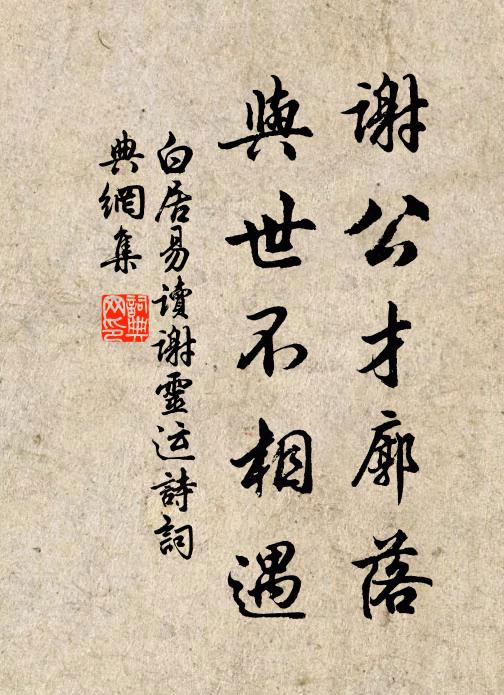 謝公才廓落
與世不相遇
白居易讀謝靈运詩詞
典網集
詞典
网印